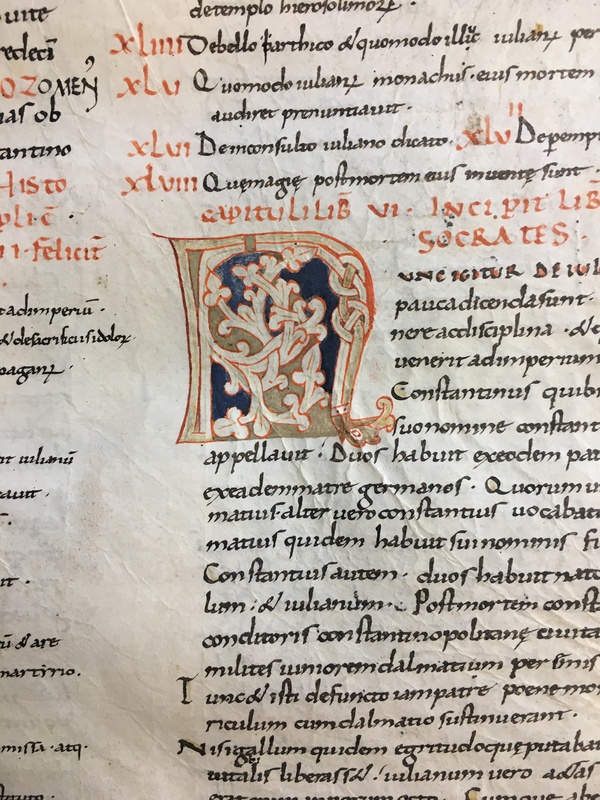 uite
redeci
OZOMEN
ias ob
tantino
Histo
pli c̄
felicit̄
tadimperiū ·
&desacrificusidoloꝝ ·
paganꝝ ·
iulianū
auit ·
ū & are
martirio.
missa · atq·
detemplo hierosolimoꝝ ·
XLIIII Debello parthico &quomodo illi iulianꝝ per
XLV Quomodo iulianꝝ monachus · eius mortem
audiret prenuntiauit ·
XLVI Deinconsulto iuliano dicato. XLVII Deperempt
XLVIII Quęmagię postmortem eius inuentę sunt ·
CAPITULI LIB̄ VI · INCIPIT LIB̄
SOCRATES ·
NUNC IGITUR DE IUL
paucadicendasunt ·
nereacdisciplina · &q
uenerit adimperium
Constantinus quibi
suonomine constant
appellauit · Duos habuit exeodem pat
exeademmatre germanos · Quorum u
matius · alter uero constantius uocaba
matius quidem habuit sui nominis fi
Constantius autem · duos habuit nato
lum · & iulianum · Postmortem const
conditoris constantinopolitanę ciuita
milites iuniorem dalmatium
Tunc & isti defuncto iampatre pęne mor
riculum cum dalmatio sustinuerant ·
Nisi gallum quidem egritudo quę putaba
uitalis liberass& · iulianum uero ad&as
Cumque abe